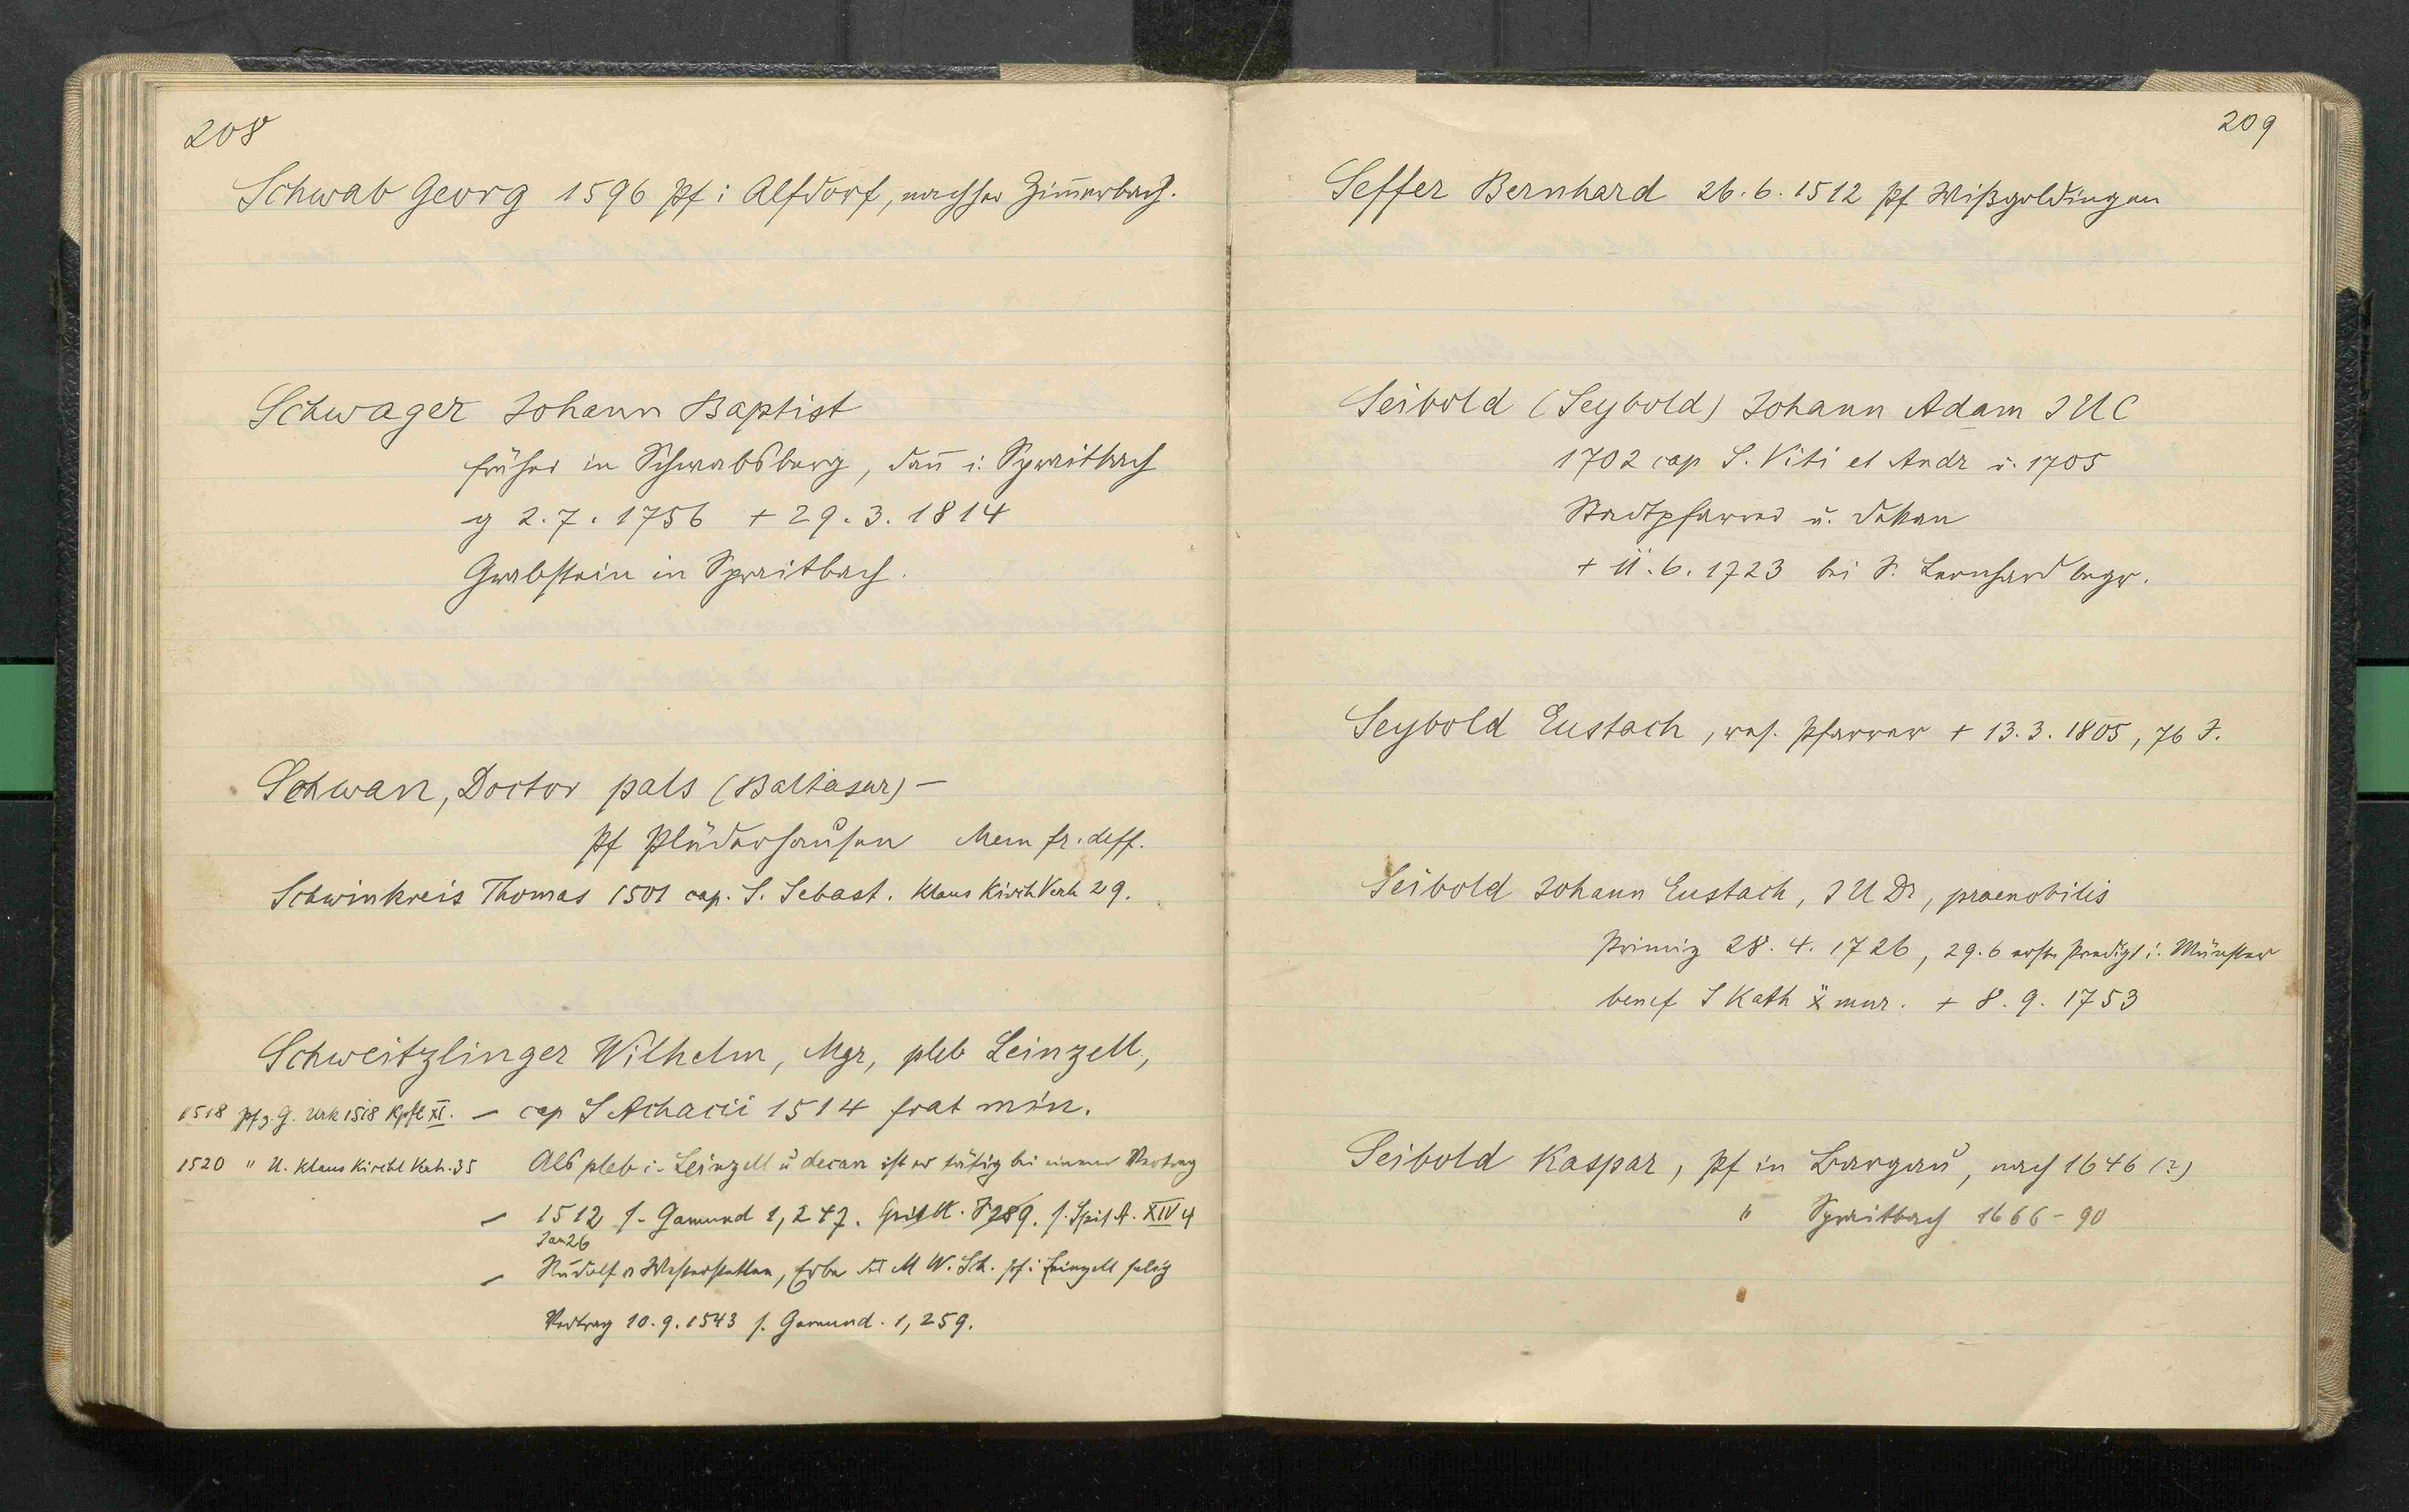 208
Schwab Georg 1596 Pf i Alfdorf, nachher Zim̄erbach.
Schwager Johann Baptist
früher in Schwabsberg, dan̄ i. Spraitbach
g 2.7.1756 + 29.3.1814
Grabstein in Spraitbach.
Schwan, Doctor pals (Baltasar) –
Pf Plüderhausen Mem fr. deff.
Schwinkreis Thomas 1501 cap. S. Sebast. Klaus Kirchl Verh 29.
Schweitzlinger Wilhelm, Mgr, pleb Leinzell,
1518 Pf z. G. Urk 1518 Kpfl XI. – cap S Achacii 1514 frat min.
1520 " U. Klaus Kirchl Verh. 35 Als pleb i. Leinzell u decan ist er tätig bei einem Vertrag
– 1512 s. Gamund 1, 247. 289. s. Spit A. XIV 4
Jan 26
– Rudolf v Westerstetten, Erbe des M W. Sch. Pf i Leinzell selig
Vertrag 10.9.1543 s. Gamund. 1, 259.
209
Seffer Bernhard 26.6.1512 Pf Wißgoldingen
Seibold (Seybold) Johann Adam J U C
1702 cap S. Viti et Andr u. 1705
Stadtpfarrer u. Dekan
+ 11.6.1723 bei S. Leonhard begr.
Seybold Eustach, res. Pfarrer + 13.3.1805, 76 J.
Seibold Johann Eustach, J U Dr, praenobilis
Primiz 28.4.1726, 29.6 erste Predigt i. Münster
benef S Kath x mur. + 8.9.1753
Seibold Kaspar, Pf in Bargau, nach 1646 (?)
" Spraitbach 1666–90